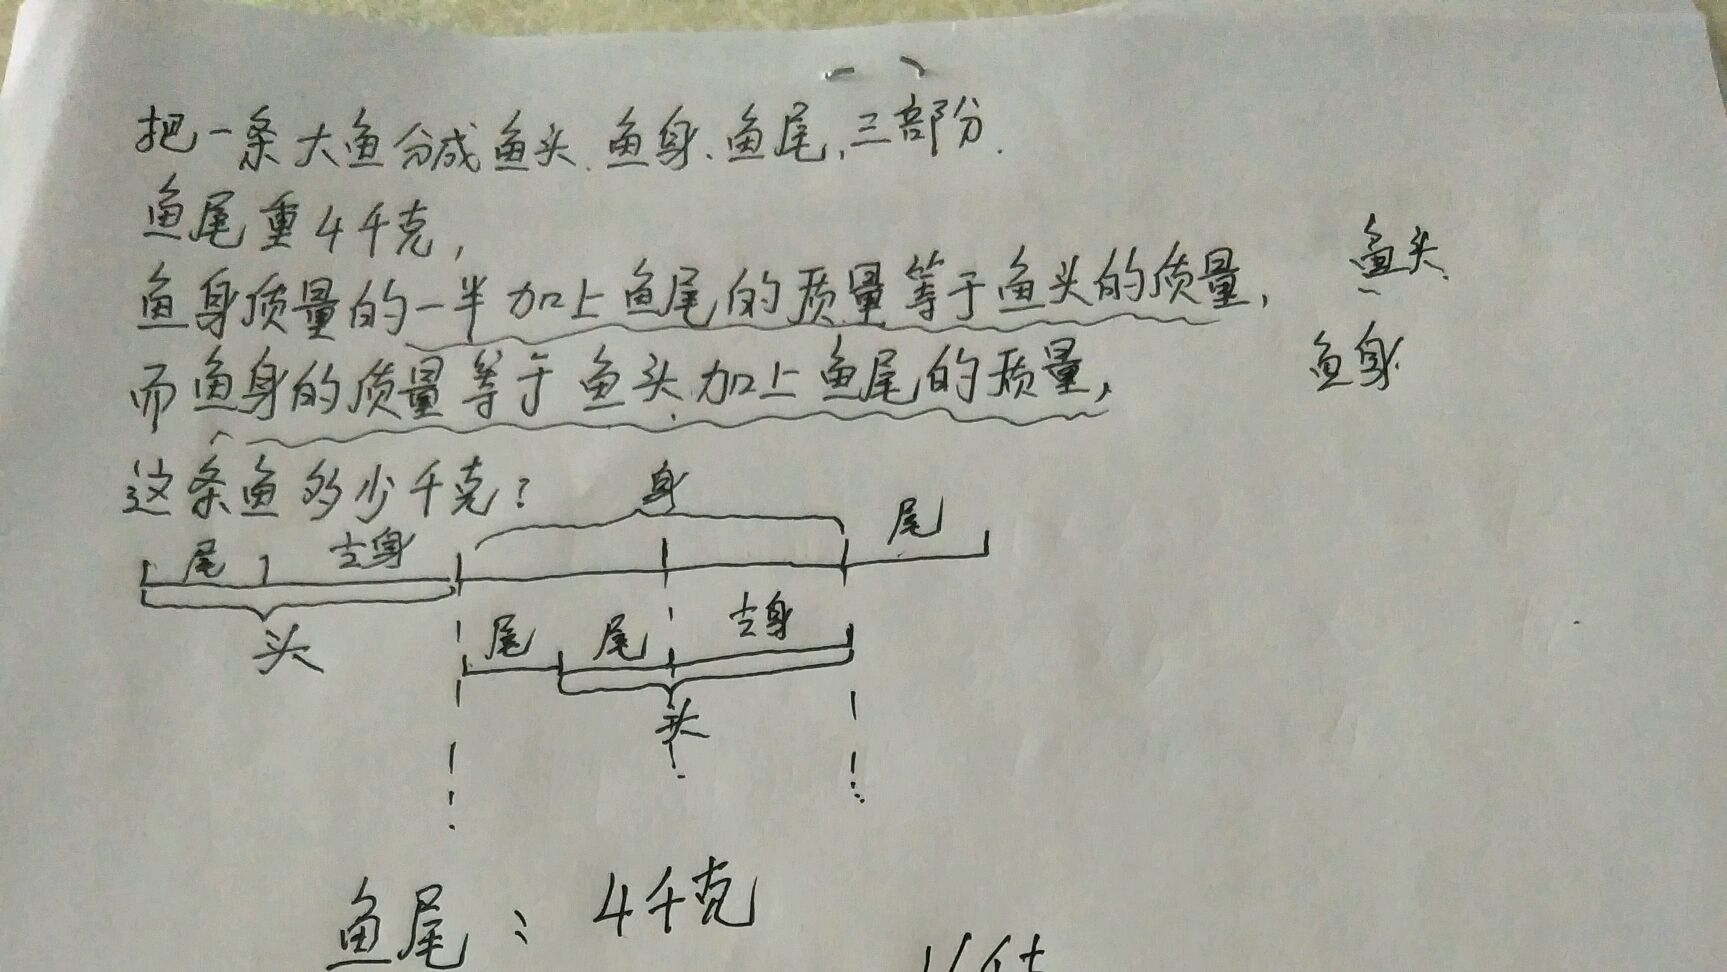 把一条大鱼分成鱼头、鱼身、鱼尾,三部分.
鱼尾重4千克,
鱼身质量的一半加上鱼尾的质量等于鱼头的质量,
鱼头
而鱼身的质量等于鱼头加上鱼尾的质量,
鱼身
这条鱼多少千克?
身
尾
尾
半身
头
尾
尾
半身
头
鱼尾: 4千克